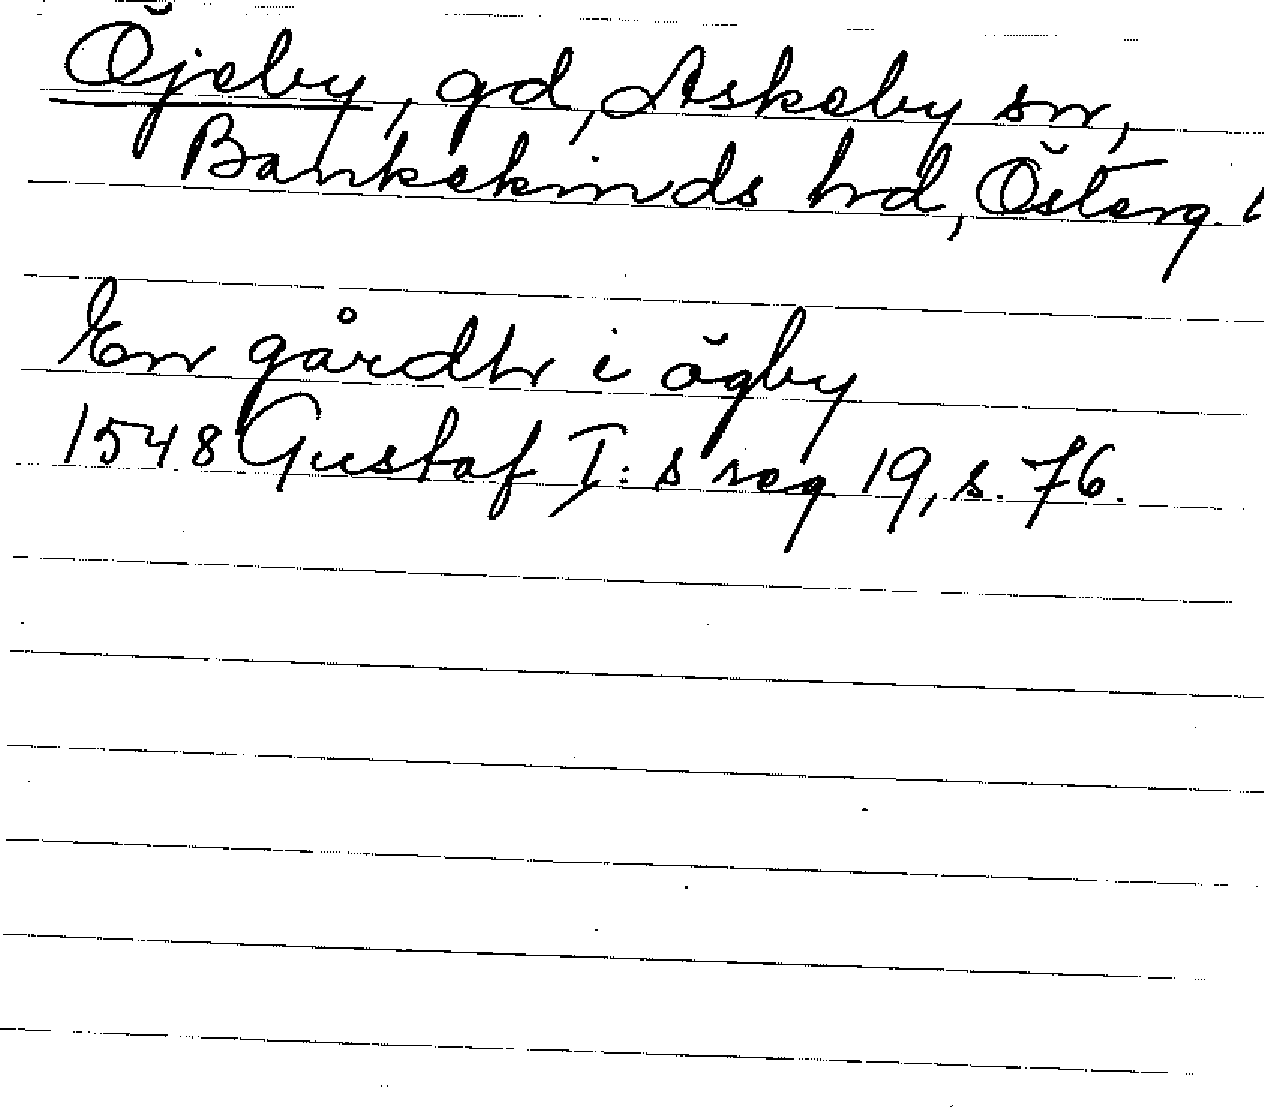 Öjeby, gd, Askeby sn,
Bankekinds hrd, Österg.
En gårdh i ögby
1548 Gustaf I:s reg 19, s. 76.